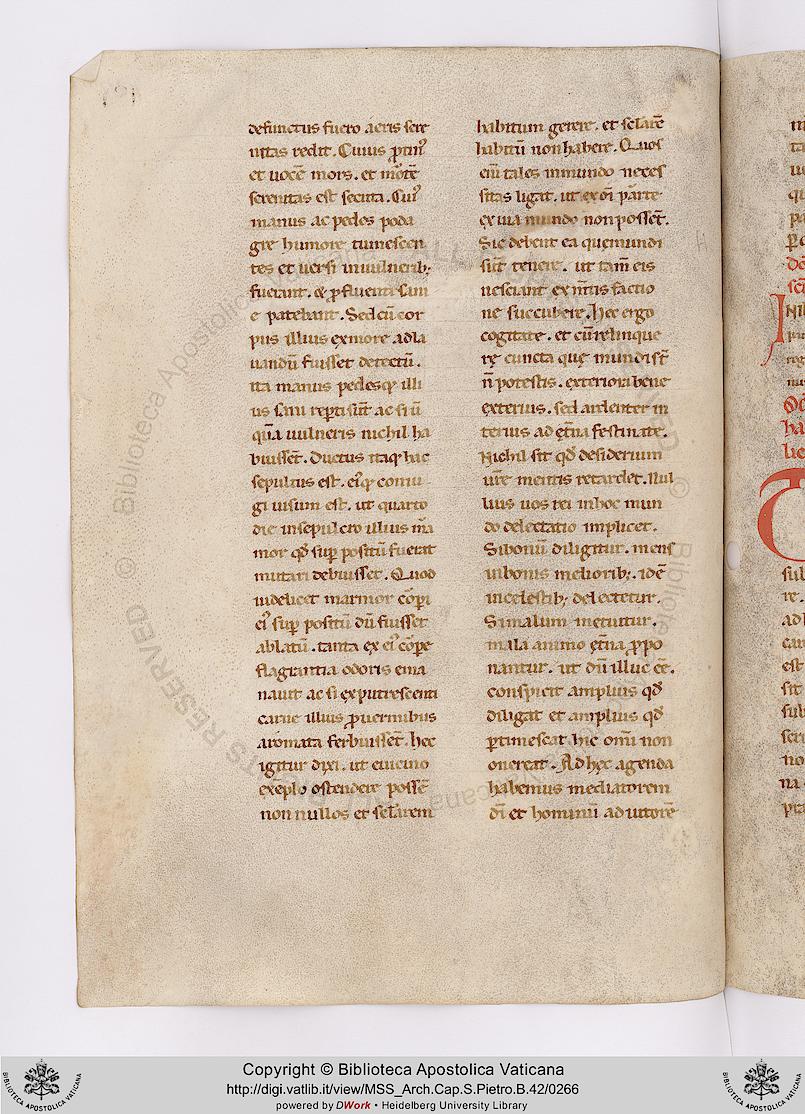 defunctus fuero aeris sere
nitas redit. Cuius ꝓtin᾽
et uocē mors. et mortē
serenitas est secuta. Cui᾽
manus ac pedes poda
gre humore tumescen
tes et uersi in uulnerib;
fuerant. & ꝓfluente sani
e patebant. Sed cū cor
pus illius ex more ad la
uandū fuisset detectū.
ita manus pedesq; illi
us sani reperti sūt ac si ū
quā uulneris nichil ha
buissēt. Ductus itaq; hac
sepultus est. ei᾽q; coniu
gi uisum est. ut quarto
die in sepulcro illius mar
mor qđ sup̱ positū fuerat
mutari debuisset. Quod
uidelicet marmor corpi
ei᾽ sup̱ positū dū fuisset
ablatū. tanta ex ei᾽ corpe
flagrantia odoris ema
nauit ac si ex putrescenti
carne illius ꝓ uermibus
aromata ferbuissēt. hec
igitur dixi. ut e uicino
exēplo ostendere possē
non nullos et sclarem
habitum gerere. et sclarē
habitū non habere. Quos
enī tales in mundo neces
sitas ligat. ut ex oī parte
exui a mundo non possēt.
Sic debent ea quę mundi
sūt tenere. ut tam̄ eis
nesciant ex mentis factio
ne succubere. hec ergo
cogitate. et cū relinque
rę cuncta quę mundi st̄
n̄ potestis. exteriora bene
exterius. sed ardenter in
terius ad ęt̄na festinate.
Nichil sit qđ desiderium
ur̄e mentis retardet. Nul
lius uos rei in hoc mun
do delectatio implicet.
Si bonū diligitur. mens
in bonis meliorib;. id ē
in celestib; delectetur.
Si malum metuitur.
mala animo ęt̄na ꝓpo
nantur. ut dū illuc eē.
conspicit amplius qđ
diligat et amplius qđ
ꝑtimescat hic om̄i non
onereat. Ad hęc agenda
habemus mediatorem
dī et hominū adiutorē
Copyright © Biblioteca Apostolica Vaticana
http://digi.vatlib.it/view/MSS_Arch.Cap.S.Pietro.B.42/0266
powered by DWork • Heidelberg University Library